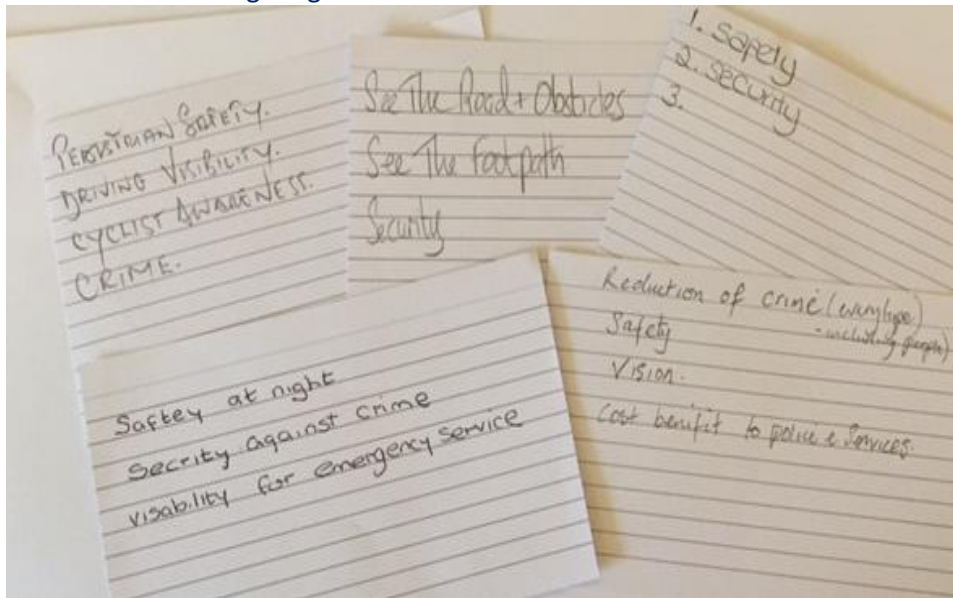 PEDESTRIAN SAFETY.
DRIVING VISIBILITY.
CYCLIST AWARENESS.
CRIME.
See The Road + Obstacles
See The Footpath
Security
1. Safety
2. Security
3.
Saftey at night
Secrity against crime
visability for emergency service
Reduction of crime (every type)
- including
Safety
Vision.
Cost benifit to police & Services.